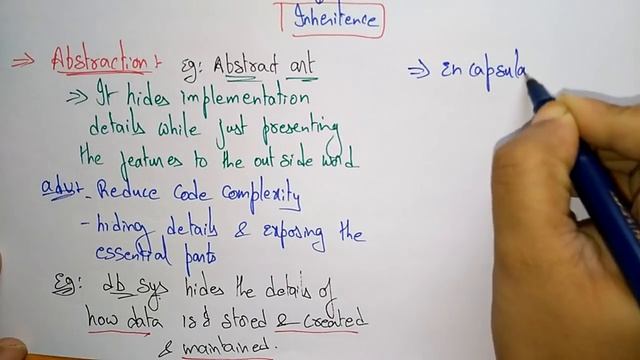 Inheritence
⇒ Abstraction :- Eg: Abstract art
⇒ It hides implementation
details while just presenting
the features to the outside world
adv:- - Reduce code complexity
- hiding details & exposing the
essential parts
Eg: db sys hides the details of
how data is stored & created
& maintained.
⇒ Encapsula